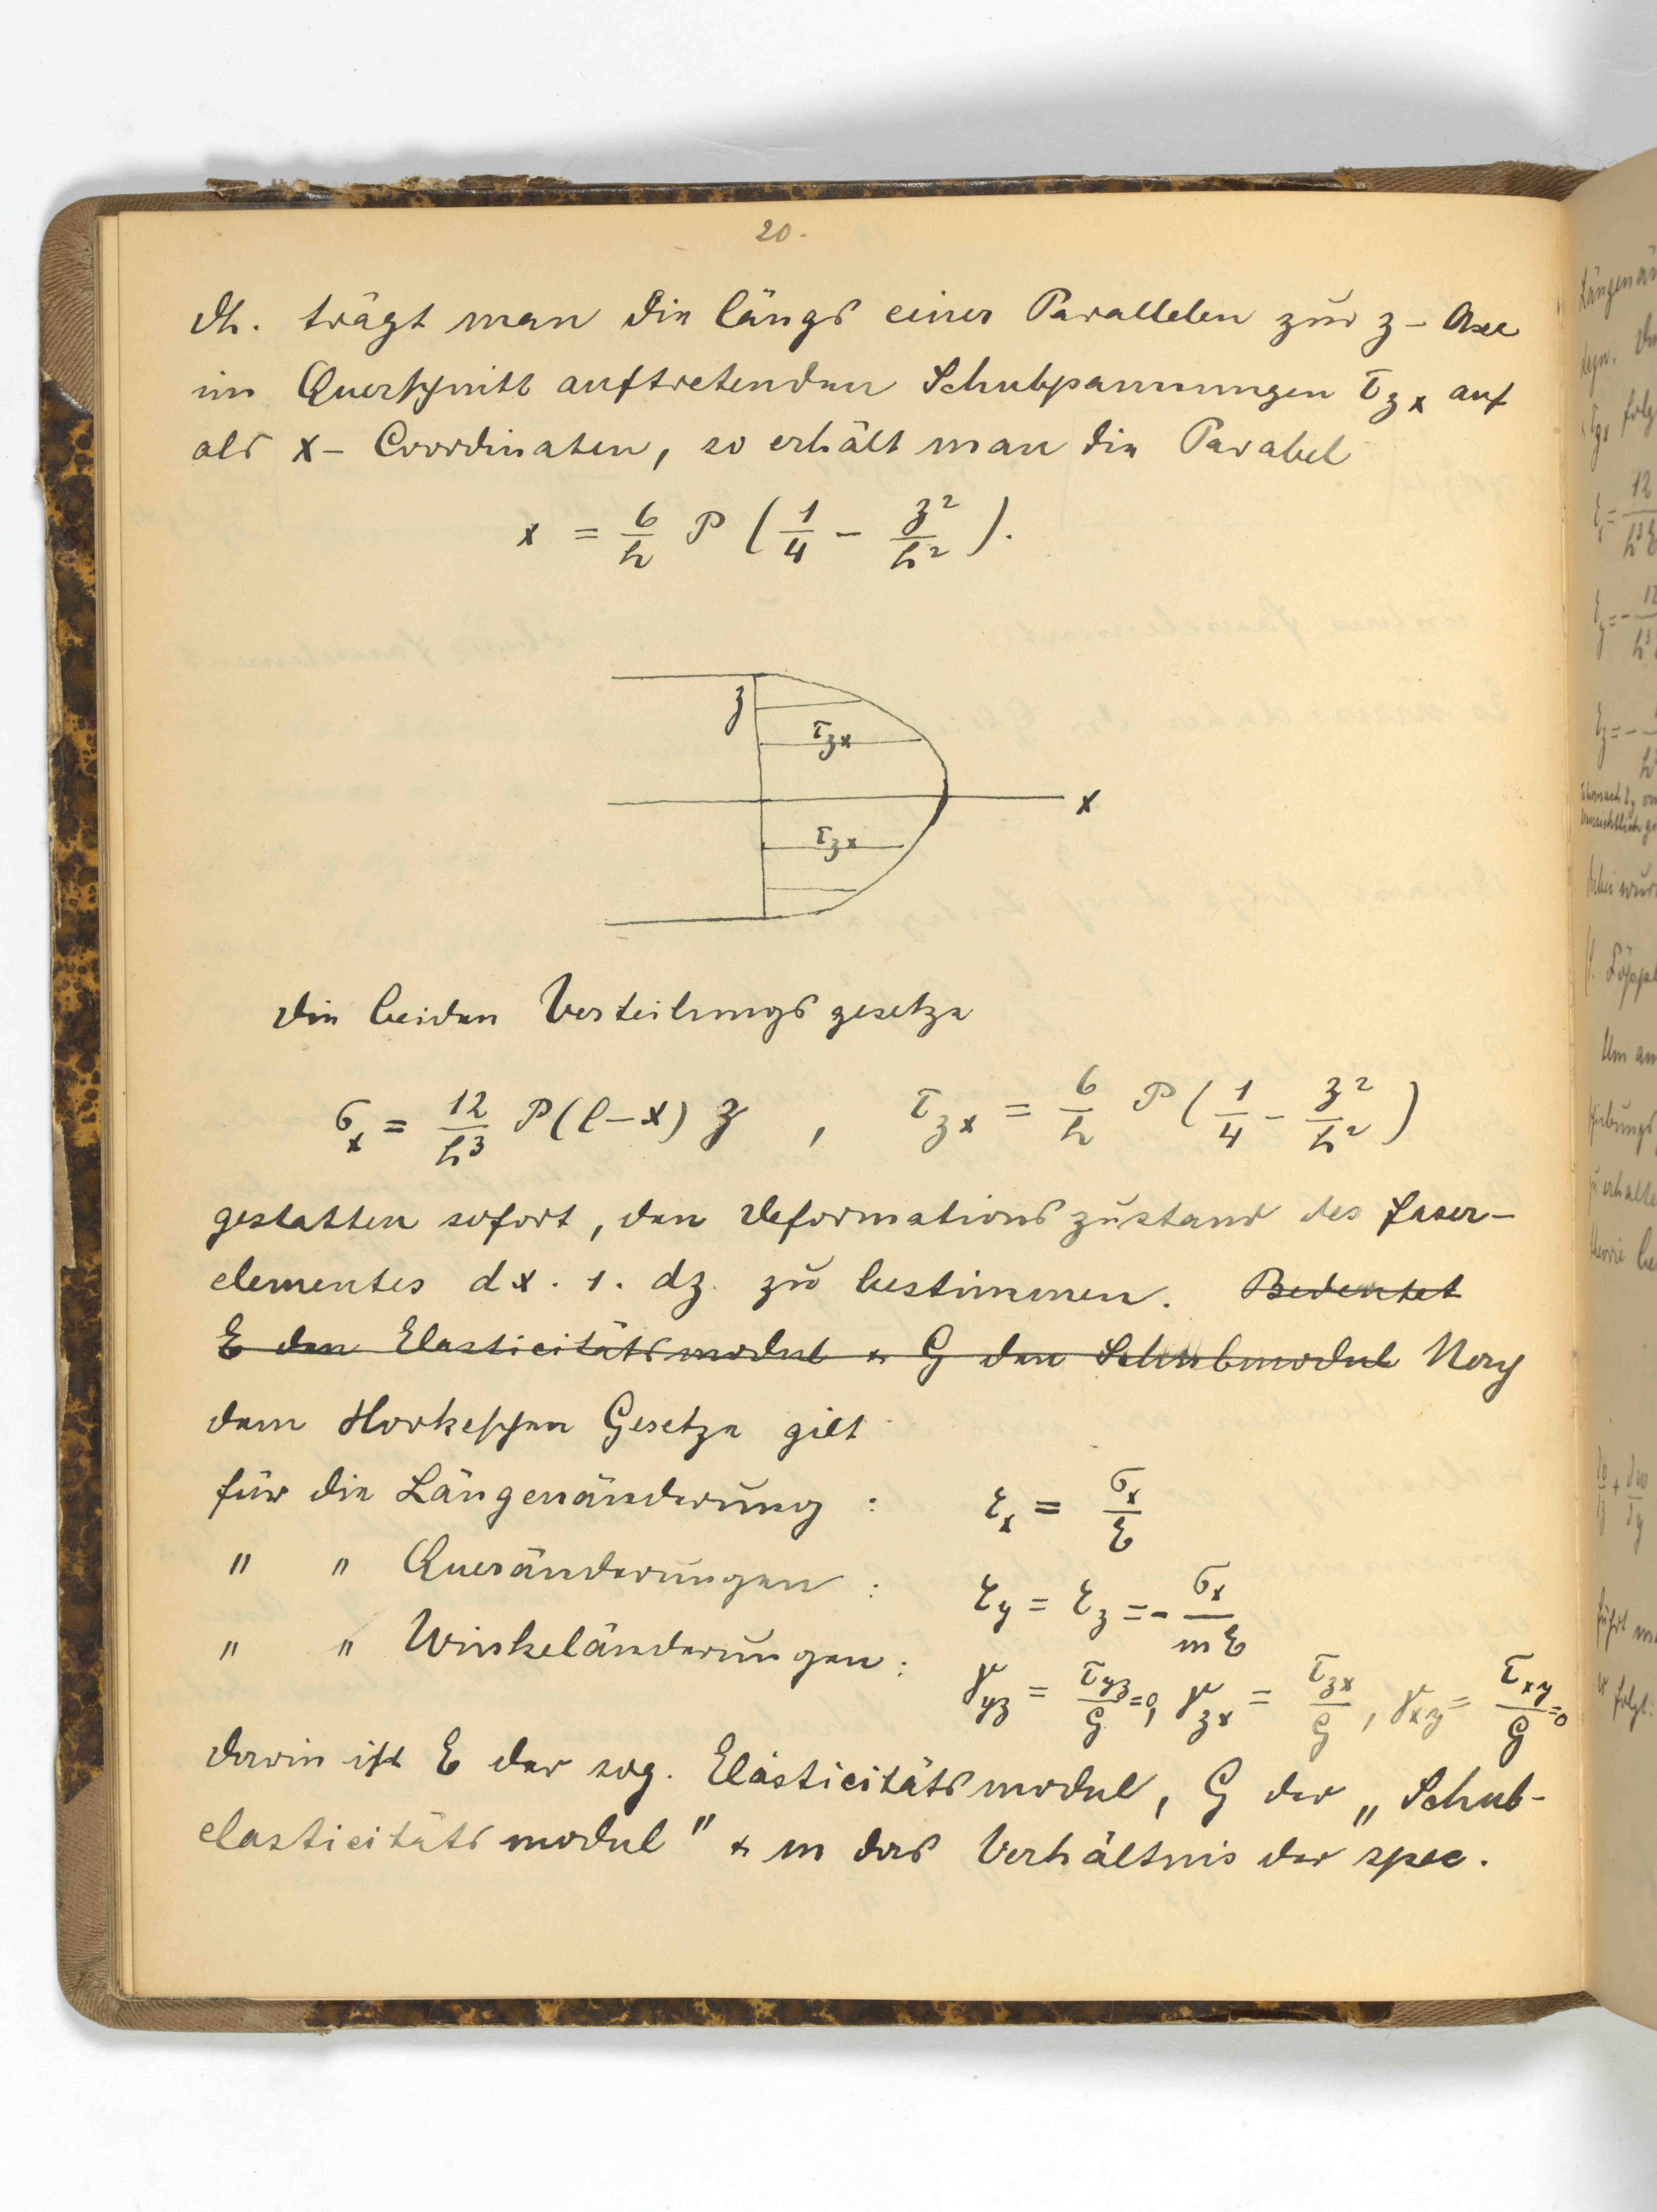 20.
dh. trägt man die längs einer Parallelen zur z - Axe
im Querschnitt auftretenden Schubspannungen τ_zx auf
als x - Coordinaten, so erhält man die Parabel
x = 6/h P ( 1/4 - z²/h² ).
z
τ_zx
x
τ_zx
Die beiden Verteilungsgesetze
σ_x = 12/h³ P (l - x) z , τ_zx = 6/h P ( 1/4 - z²/h² )
gestatten sofort, den Deformationszustand des Faser-
elementes dx . 1 . dz zu bestimmen. Bedeutet
E den Elasticitätsmodul & G den Schubmodul Nach
dem Hookeschen Gesetze gilt
für die Längenänderung : ε_x = σ_x/E
" " Queränderungen : ε_y = ε_z = - σ_x/mE
" " Winkeländerungen : γ_yz = τ_yz/G = 0, γ_zx = τ_zx/G , γ_xy = τ_xy/G = 0
darin ist E der sog. Elasticitätsmodul, G der „Schub-
elasticitätsmodul" & m das Verhältnis der spec.